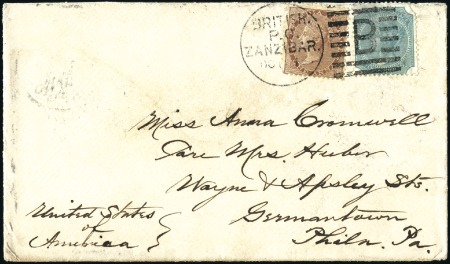 BRITISH.
P.O.
ZANZIBAR.
B
Miss Anna Cromwell
Care Mrs. Huber
Wayne & Apsley Sts.
Germantown
Phila. Pa.
United States
of
America